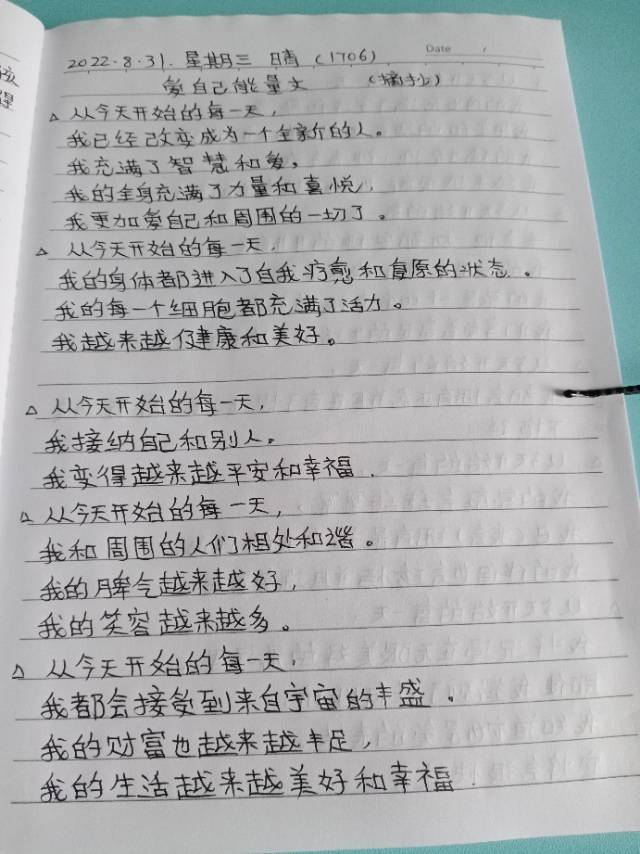 2022.8.31. 星期三 晴 (1706)
Date /
爱自己能量文 (摘抄)
△ 从今天开始的每一天,
我已经改变成为一个全新的人。
我充满了智慧和爱。
我的全身充满了力量和喜悦.
我更加爱自己和周围的一切了。
△ 从今天开始的每一天.
我的身体都进入了自我疗愈和复原的状态。
我的每一个细胞都充满了活力。
我越来越健康和美好。
△ 从今天开始的每一天,
我接纳自己和别人。
我变得越来越平安和幸福.
△ 从今天开始的每一天,
我和周围的人们相处和谐。
我的脾气越来越好,
我的笑容越来越多。
△ 从今天开始的每一天.
我都会接受到来自宇宙的丰盛。
我的财富也越来越丰足,
我的生活越来越美好和幸福.